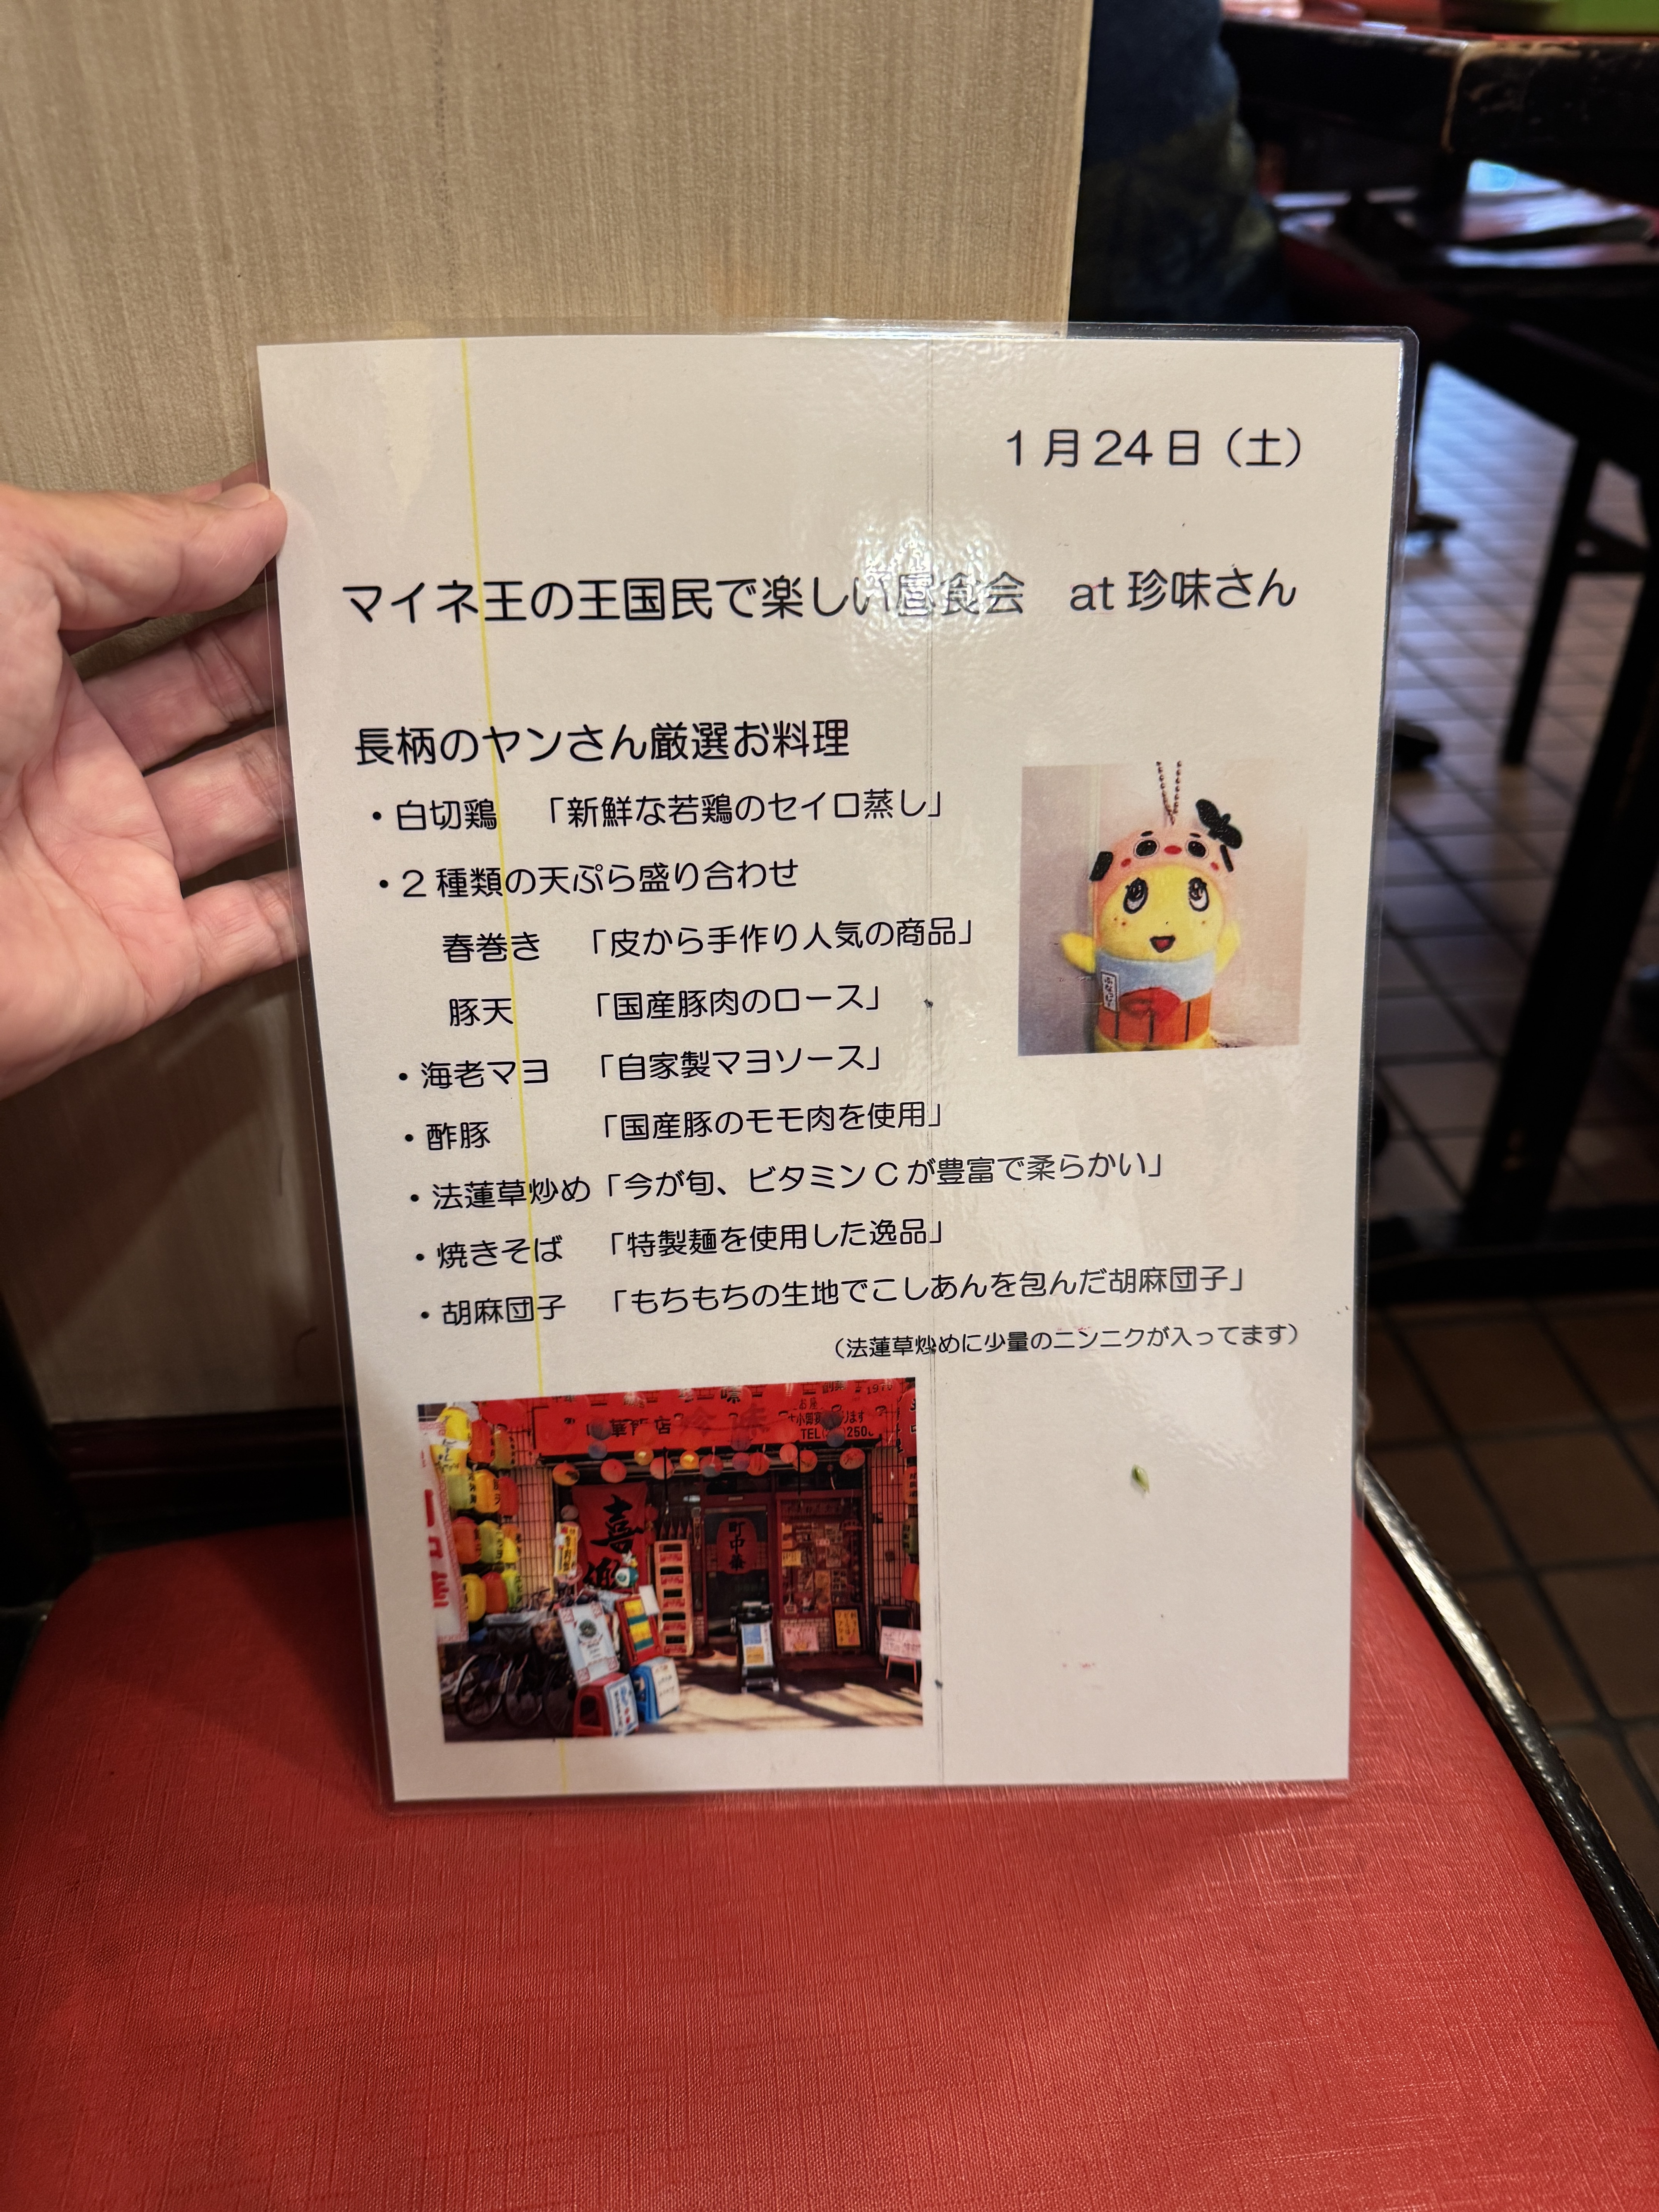 1月24日（土）
マイネ王の王国民で楽しい昼食会　at 珍味さん
長柄のヤンさん厳選お料理
・白切鶏　「新鮮な若鶏のセイロ蒸し」
・2種類の天ぷら盛り合わせ
春巻き　「皮から手作り人気の商品」
豚天　「国産豚肉のロース」
・海老マヨ　「自家製マヨソース」
・酢豚　「国産豚のモモ肉を使用」
・法蓮草炒め「今が旬、ビタミンCが豊富で柔らかい」
・焼きそば　「特製麺を使用した逸品」
・胡麻団子　「もちもちの生地でこしあんを包んだ胡麻団子」
（法蓮草炒めに少量のニンニクが入ってます）
喜
町中華